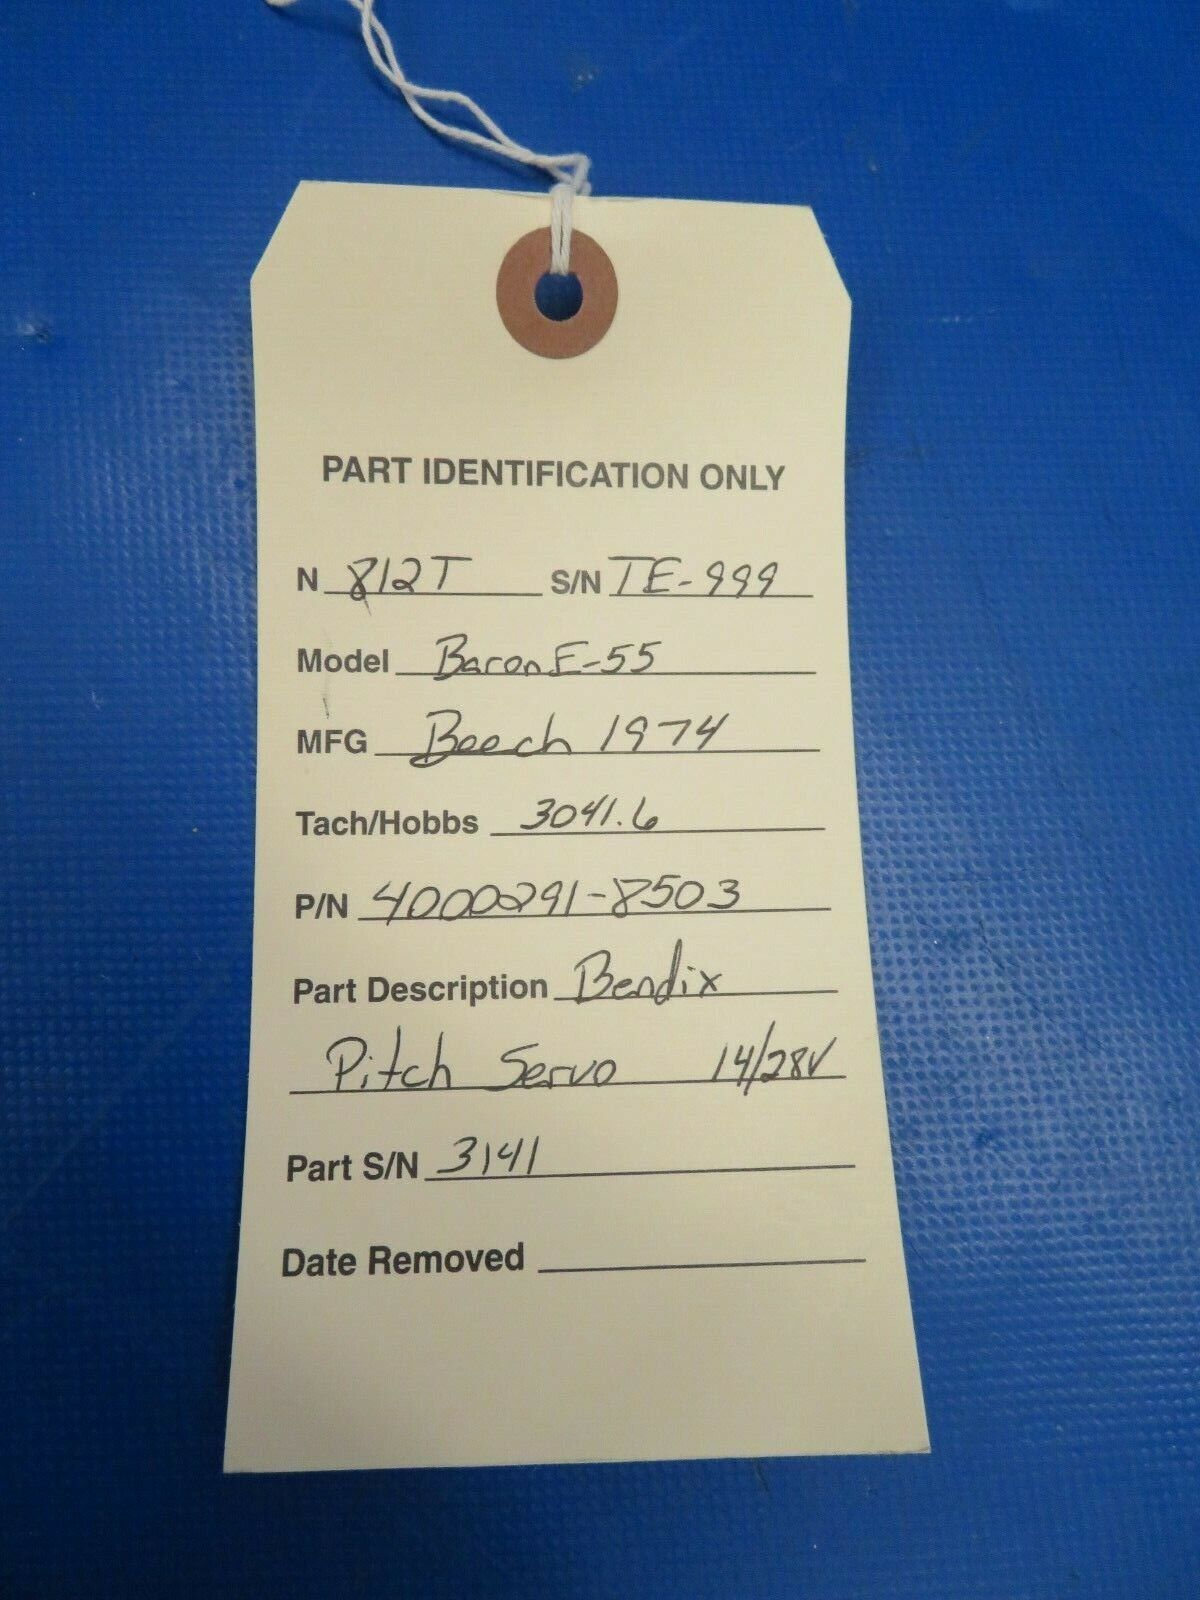 PART IDENTIFICATION ONLY
N 812T S/N TE-999
Model Baron E-55
MFG Beech 1974
Tach/Hobbs 3041.6
P/N 4000291-8503
Part Description Bendix
Pitch Servo 14/28V
Part S/N 3141
Date Removed